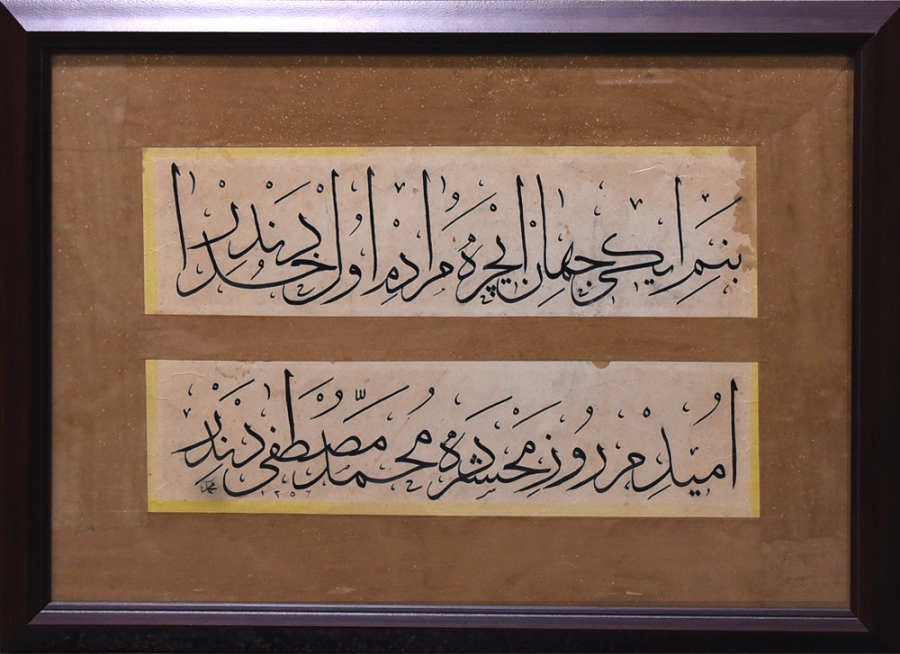 بنم ایکی جهان ایچره مرادم اول خدادندر
امیدمز روز محشرده محمد مصطفی دندر
١٢٥٢